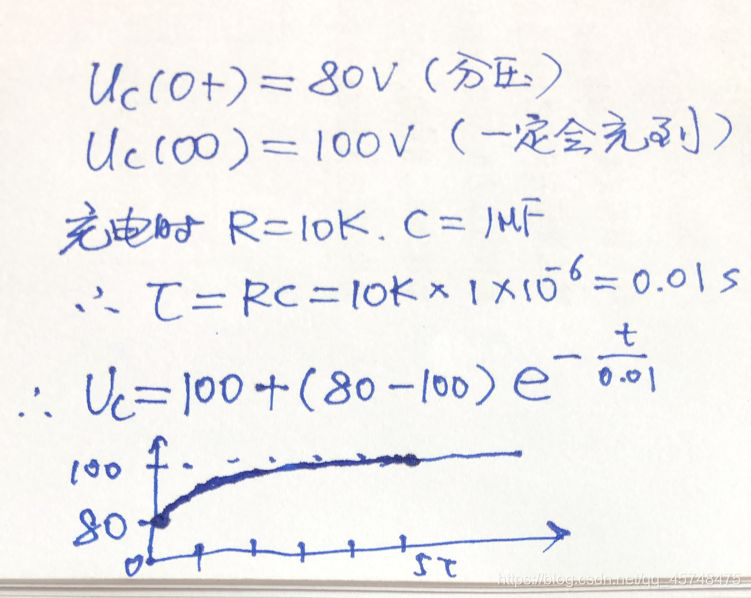 Uc(0+)=80V(分压)
Uc(∞)=100V(一定会充到)
充电时 R=10K. C=1MF
∴ τ=RC=10K×1×10⁻⁶=0.01s
∴ Uc=100+(80-100)e^(-t/0.01)
100
80
0
5τ
https://blog.csdn.net/qq_45748475